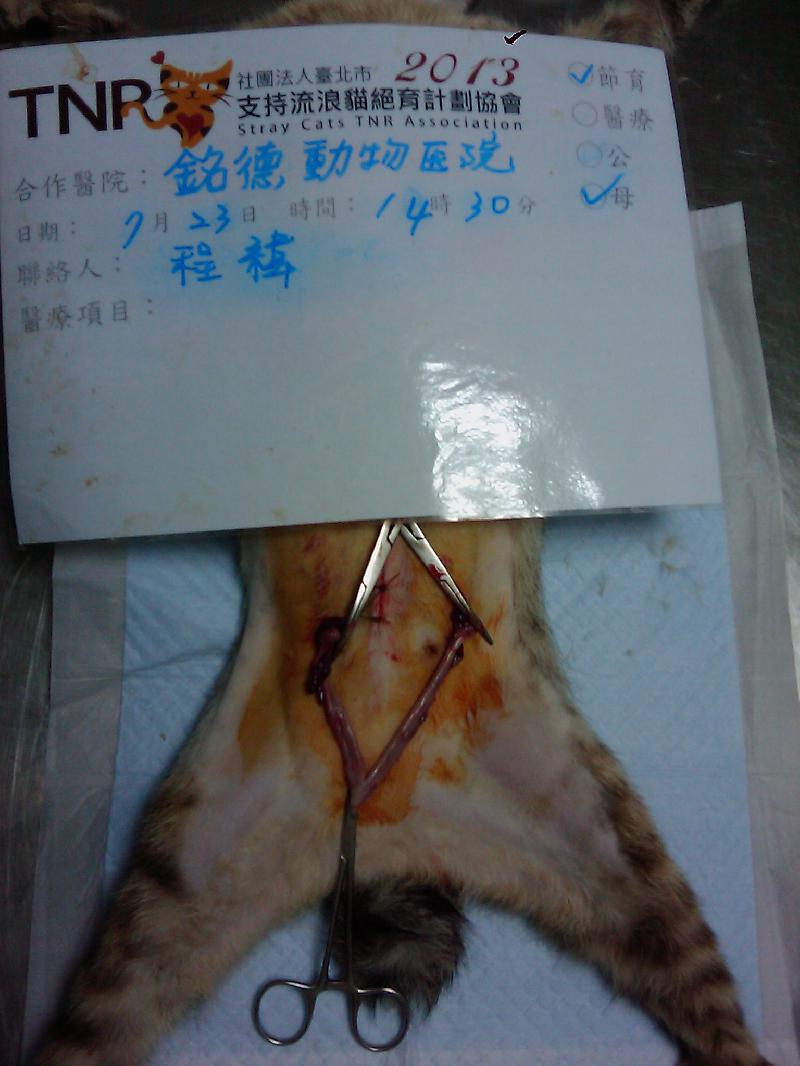 TNR
社團法人臺北市 2013
支持流浪貓絕育計劃協會
Stray Cats TNR Association
節育
醫療
公
母
合作醫院：銘德動物医院
日期：7月23日 時間：14時30分
聯絡人：程禕
醫療項目：